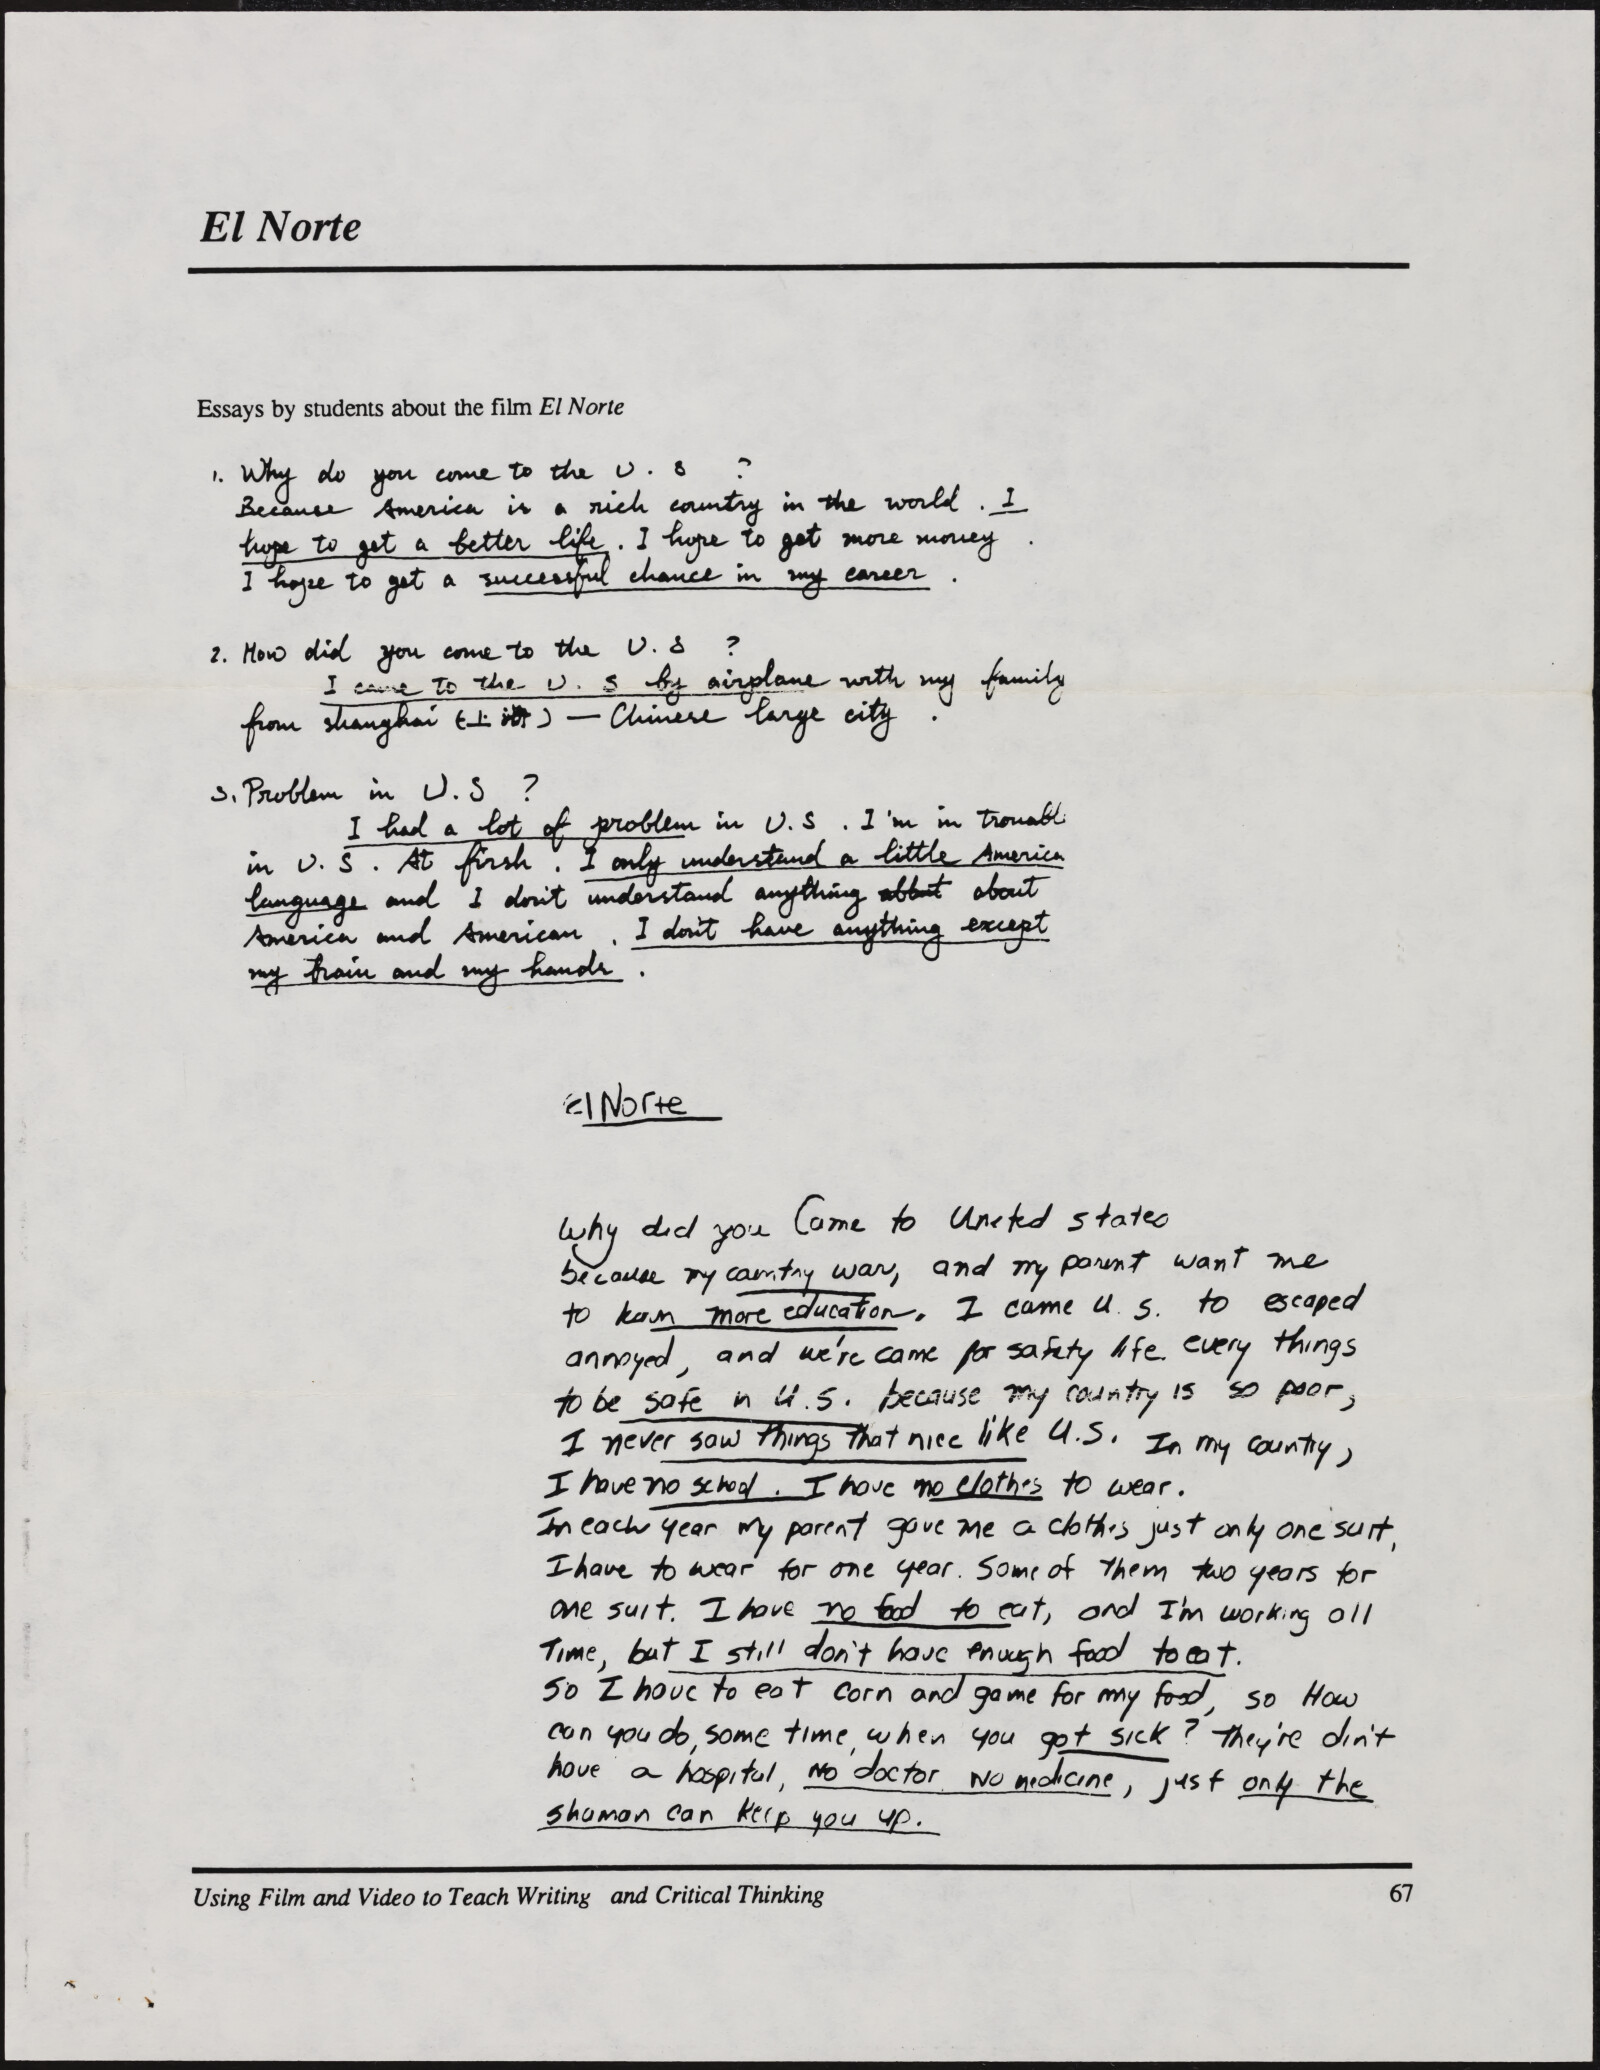 El Norte
Essays by students about the film El Norte
1. Why do you come to the U.S ?
Because America is a rich country in the world . I
hope to get a better life . I hope to get more money .
I hope to get a successful chance in my career .
2. How did you come to the U.S ?
I came to the U.S by airplane with my family
from shanghai (上海) — Chinese large city .
3. Problem in U.S ?
I had a lot of problem in U.S . I'm in trouabl
in U.S . At firsh . I only understand a little America
language and I don't understand anything about
America and American . I don't have anything except
my brain and my hands .
El Norte
Why did you Came to United states
because my country war, and my parent want me
to learn more education. I came U.S. to escaped
annoyed, and we're came for safety life. every things
to be safe in U.S. because my country is so poor,
I never saw things that nice like U.S. In my country,
I have no school. I have no clothes to wear.
In each year my parent gave me a clothes just only one suit,
I have to wear for one year. Some of them two years for
one suit. I have no food to eat, and I'm working all
Time, but I still don't have enough food to eat.
So I have to eat corn and game for my food, so How
can you do, some time, when you got sick? They're din't
have a hospital, no doctor no medicine, just only the
shaman can keep you up.
Using Film and Video to Teach Writing and Critical Thinking
67